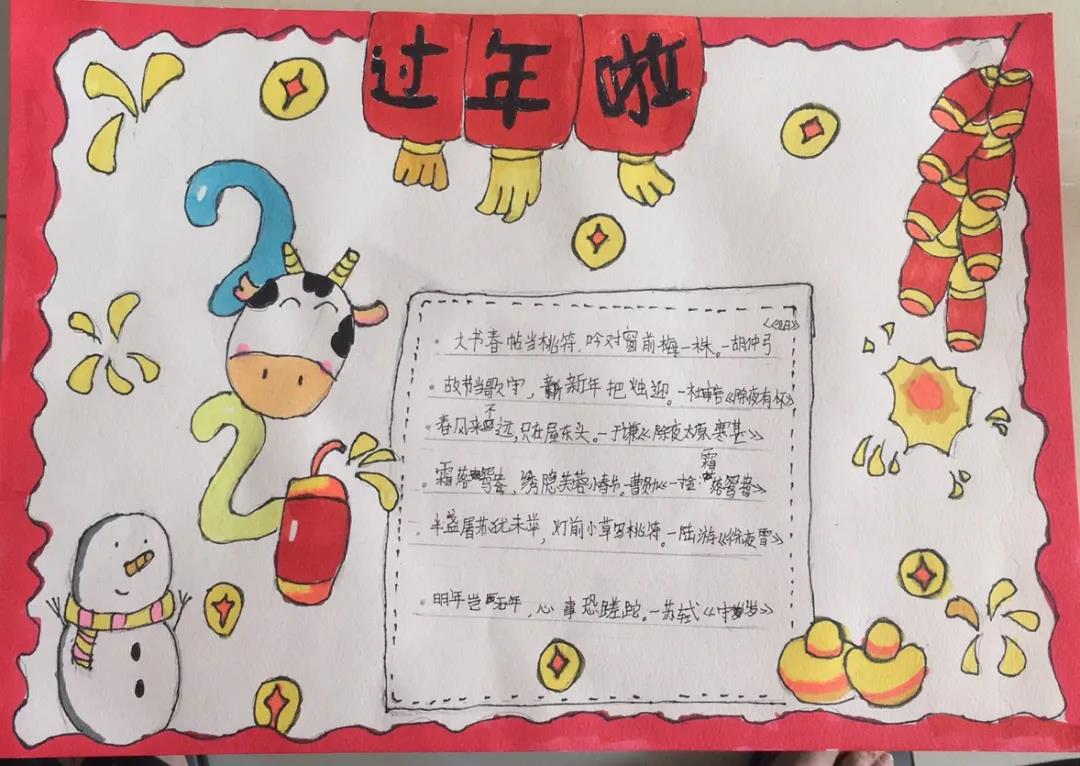 过年啦
《元日》
大书春帖当桃符.吟对窗前梅一株。—胡仲弓
故节当歌守,新年把烛迎。—杜审言《除夜有怀》
春风来不远,只在屋东头。—于谦《除夜太原寒甚》
霜落鸳鸯,绣隐芙蓉小春节.—曹勋《一 霜落鸳鸯》
半盏屠苏犹未举,灯前小草写桃符。—陆游《除夜雪》
明年岂无年,心事恐蹉跎.—苏轼《守岁》